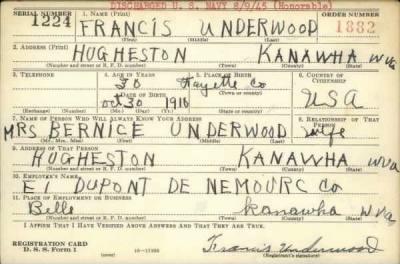 DISCHARGED U. S. NAVY 8/9/45 (Honorable)
SERIAL NUMBER 1. NAME (Print) ORDER NUMBER
1224 FRANCIS UNDERWOOD 1882
(First) (Middle) (Last)
2. ADDRESS (Print)
HUGHESTON KANAWHA W Va
(Number and street or R. F. D. number) (Town) (County) (State)
3. TELEPHONE 4. AGE IN YEARS 5. PLACE OF BIRTH 6. COUNTRY OF CITIZENSHIP
Fayette Co
DATE OF BIRTH (Town or county)
Oct 30 1910 USA
(Exchange) (Number) (Mo.) (Day) (Yr.) (State or country)
7. NAME OF PERSON WHO WILL ALWAYS KNOW YOUR ADDRESS 8. RELATIONSHIP OF THAT PERSON
MRS BERNICE UNDERWOOD wife
(Mr., Mrs., Miss) (First) (Middle) (Last)
9. ADDRESS OF THAT PERSON
HUGHESTON KANAWHA W Va
(Number and street or R. F. D. number) (Town) (County) (State)
10. EMPLOYER'S NAME
EI DUPONT DE NEMOURC Co
11. PLACE OF EMPLOYMENT OR BUSINESS
Belle Kanawha W Va
(Number and street or R. F. D. number) (Town) (County) (State)
I AFFIRM THAT I HAVE VERIFIED ABOVE ANSWERS AND THAT THEY ARE TRUE.
REGISTRATION CARD
D. S. S. Form 1 Francis Underwood
(Registrant's signature)